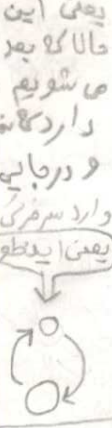 یعنی این
حالا که بعد
می شویم
دارد که
و در جایی
وارد سر مرکز
یعنی اید طو